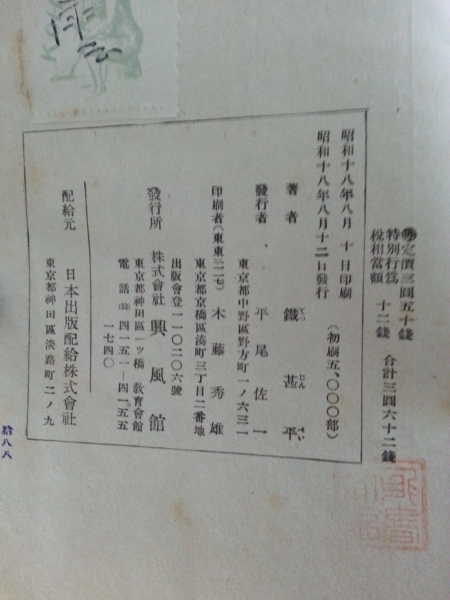 定價三圓五十錢
特別行爲
稅相當額 十二錢 合計三圓六十二錢
昭和十八年八月 十 日印刷
昭和十八年八月十二日發行 (初刷五、〇〇〇部)
著者 鐵甚平
てつ じん ぺい
發行者 平尾佐一
東京都中野區野方町一ノ六三一
印刷者(東東三二七) 木藤秀雄
東京都京橋區湊町三丁目二番地
出版會登一一〇二〇六號
發行所 株式會社 興風館
東京都神田區一ツ橋 教育會館
電話 四一五一―四一五五
一七四〇
配給元 日本出版配給株式會社
東京都神田區淡路町二ノ九
拾八八